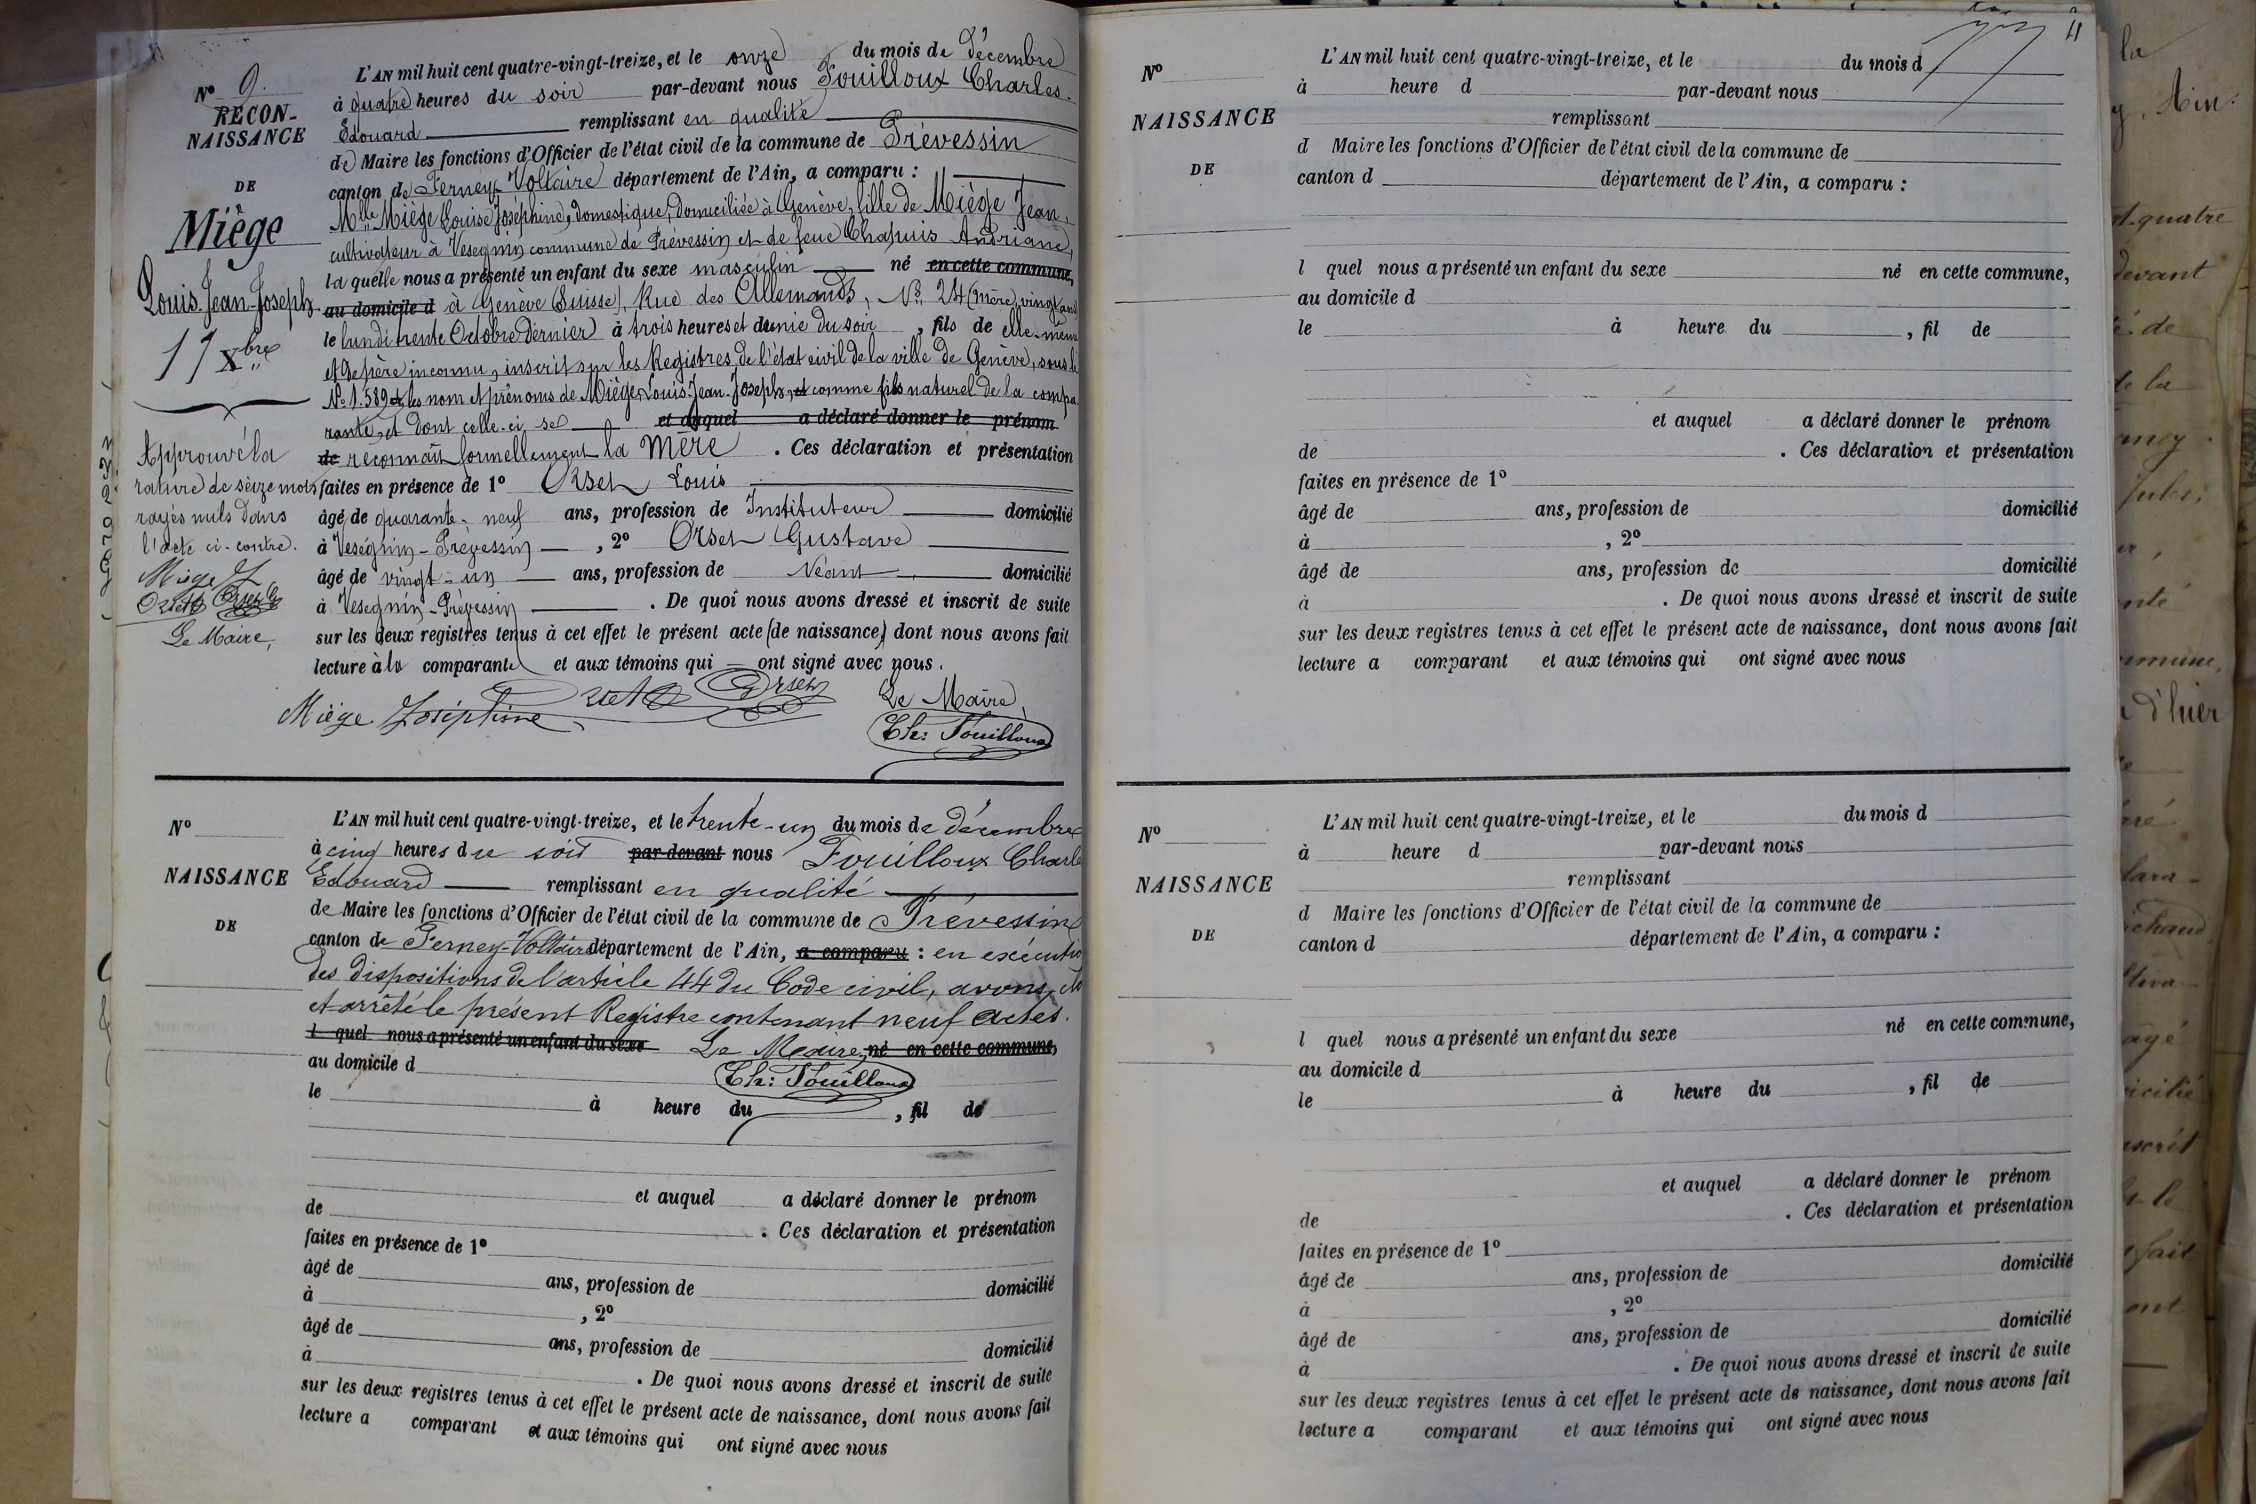 Nº 9.
RECON-
NAISSANCE
DE
Miège
Louis-Jean-Joseph.
11 Xbre
Approuvé la
rature de seize mots
rayés nuls dans
l'acte ci-contre.
Miège J
Orset Orset G
Le Maire,
L'AN mil huit cent quatre-vingt-treize, et le onze du mois de Décembre
à quatre heures du soir par-devant nous Fouilloux Charles-
Edouard remplissant en qualité
de Maire les fonctions d'Officier de l'état civil de la commune de Prévessin
canton de Ferney-Voltaire département de l'Ain, a comparu :
Mlle Miège Louise Joséphine, domestique, domiciliée à Genève, fille de Miège Jean,
cultivateur à Vesegnin commune de Prévessin et de feue Chapuis Andriane,
la quelle nous a présenté un enfant du sexe masculin né en cette commune,
au domicile d à Genève (Suisse), Rue des Allemands, Nº 24 (mère) vingt ans
le lundi trente Octobre dernier à trois heures et demie du soir , fils de elle-même
et de père inconnu, inscrit sur les Registres de l'état civil de la ville de Genève, sous le
Nº 1.589 et les nom et prénoms de Miège, Louis-Jean-Joseph, et comme fils naturel de la compa
rante, et dont celle-ci se et auquel a déclaré donner le prénom
de reconnaît formellement la Mère . Ces déclaration et présentation
faites en présence de 1º Orset Louis
âgé de quarante-neuf ans, profession de Instituteur domicilié
à Veségnin-Prévessin , 2º Orset Gustave
âgé de vingt-un ans, profession de Néant domicilié
à Vesegnin-Prévessin . De quoi nous avons dressé et inscrit de suite
sur les deux registres tenus à cet effet le présent acte (de naissance) dont nous avons fait
lecture à la comparante et aux témoins qui ont signé avec nous.
Miège Joséphine Orset Orset Le Maire,
Ch: Fouilloux
Nº
NAISSANCE
DE
L'AN mil huit cent quatre-vingt-treize, et le trente-un du mois de décembre
à cinq heures du soir par-devant nous Fouilloux Charle
Edouard remplissant en qualité
de Maire les fonctions d'Officier de l'état civil de la commune de Prévessin
canton de Ferney-Voltaire département de l'Ain, a comparu : en exécutio
des dispositions de l'article 44 du Code civil, avons clo
et arrêté le présent Registre contenant neuf actes.
l quel nous a présenté un enfant du sexe Le Maire, né en cette commune,
au domicile d Ch: Fouilloux
le à heure du , fil de
et auquel a déclaré donner le prénom
de . Ces déclaration et présentation
faites en présence de 1º
âgé de ans, profession de domicilié
à , 2º
âgé de ans, profession de domicilié
à . De quoi nous avons dressé et inscrit de suite
sur les deux registres tenus à cet effet le présent acte de naissance, dont nous avons fait
lecture a comparant et aux témoins qui ont signé avec nous
11
Nº
NAISSANCE
DE
L'AN mil huit cent quatre-vingt-treize, et le du mois d
à heure d par-devant nous
remplissant
d Maire les fonctions d'Officier de l'état civil de la commune de
canton d département de l'Ain, a comparu :
l quel nous a présenté un enfant du sexe né en cette commune,
au domicile d
le à heure du , fil de
et auquel a déclaré donner le prénom
de . Ces déclaration et présentation
faites en présence de 1º
âgé de ans, profession de domicilié
à , 2º
âgé de ans, profession de domicilié
à . De quoi nous avons dressé et inscrit de suite
sur les deux registres tenus à cet effet le présent acte de naissance, dont nous avons fait
lecture a comparant et aux témoins qui ont signé avec nous
Nº
NAISSANCE
DE
L'AN mil huit cent quatre-vingt-treize, et le du mois d
à heure d par-devant nous
remplissant
d Maire les fonctions d'Officier de l'état civil de la commune de
canton d département de l'Ain, a comparu :
l quel nous a présenté un enfant du sexe né en cette commune,
au domicile d
le à heure du , fil de
et auquel a déclaré donner le prénom
de . Ces déclaration et présentation
faites en présence de 1º
âgé de ans, profession de domicilié
à , 2º
âgé de ans, profession de domicilié
à . De quoi nous avons dressé et inscrit de suite
sur les deux registres tenus à cet effet le présent acte de naissance, dont nous avons fait
lecture a comparant et aux témoins qui ont signé avec nous
la
Ain.
quatre
devant
de
de la
d'hier
fait